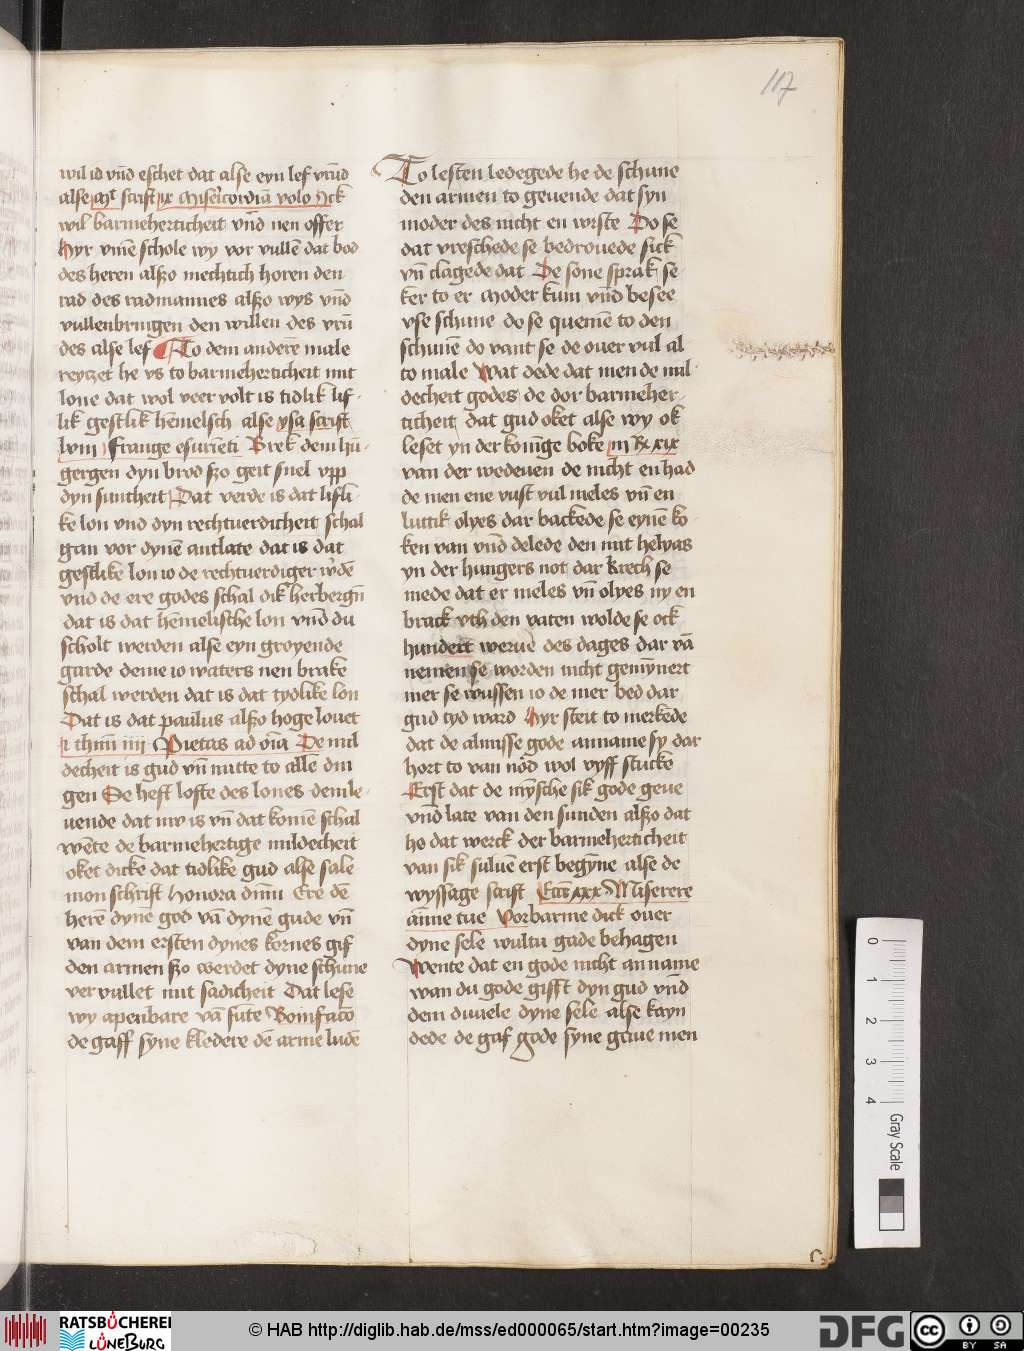 117
wil id vnd eschet dat alse eyn lef vrund
alse scrift ix Misericordiā volo Ick
wil barmeherticheit vnd nen offer
Hyr vmē schole wy vor vullē dat bod
des heren alßo mechtich horen den
rad des radmannes alßo wys vnd
vullenbringen den willen des vrū
des alse lef To dem anderē male
reytzet he vs to barmeherticheit mit
lone dat wol veer volt is tidlik lif
lik gestlik hēmelsch alse ysa scrift
lviii Frange esuriēti Brek dem hū
gergen dyn brod ßo geit snel vpp
dyn suntheit Dat verde is dat lifli
ke lon vnd dyn rechtuerdicheit schal
gan vor dynē antlate dat is dat
gestlike lon io de rechtuerdiger
vnd de ere godes schal dik herbergn̄
dat is dat hēmelische lon vnd du
scholt werden alse eyn groyende
garde deme io waters nen brake
schal werden dat is dat tydlike lon
Dat is dat paulus alßo hoge louet
i thim iiii Pietas ad oīa De mil
decheit is gud vn̄ nutte to allē din
gen De heft lofte des lones dem le
uende dat nw is vn̄ dat komē schal
wēte de barmehertige mildecheit
oket dicke dat tidlike gud alse sale
mon schrift Honora dn̄m Ere dē
herē dynē god vā dynē gude vn̄
van dem ersten dynes kornes gif
den armen ßo werdet dyne schune
ver vullet mit sadicheit Dat lese
wy apenbare vā sūte Bonifacō
de gaff syne kledere dē armē ludē
To lesten ledegede he de schune
den armen to geuende dat syn
moder des nicht en wiste Do se
dat vreschede se bedrouede sick
vn̄ clagede dat De sone sprak se
ker to er Moder kum vnd besee
vse schune do se quemē to den
schunē do vant se de ouer vul al
to male Wat dede dat men de mil
decheit godes de dor barmeher
ticheit dat gud oket alse wy ok
leset yn der konīge boke iii R xix
van der wedeuen de nicht en had
de men ene vust vul meles vn̄ en
luttik olyes dar backede se eynē ko
ken van vnd delede den mit helyas
yn der hungers not dar krech se
mede dat er meles vn̄ olyes ny en
brack vth den vaten wolde se ock
hundert werue des dages dar vā
nemen se worden nicht gemȳnert
mer se wussen io de mer bed dar
gud tyd ward Hyr steit to merkēde
dat de almisse gode anname sy dar
hort to van nōd wol vyff stucke
Erst dat de mȳsche sik gode geue
vnd late van den sunden alßo dat
ho dat werck der barmeherticheit
van sik suluē erst begȳne alse de
wyssage scrift Ecc̄ xxx Miserere
āīme tue Vorbarme dick ouer
dyne sele wultu gade behagen
Wente dat en gode nicht anname
wan du gode gifft dyn gud vnd
dem duuele dyne sele alse kayn
dede de gaf gode syne gaue men
0
1
2
3
4
Gray Scale
RATSBÜCHEREI
LÜNEBURG
© HAB http://diglib.hab.de/mss/ed000065/start.htm?image=00235
DFG
cc
BY SA